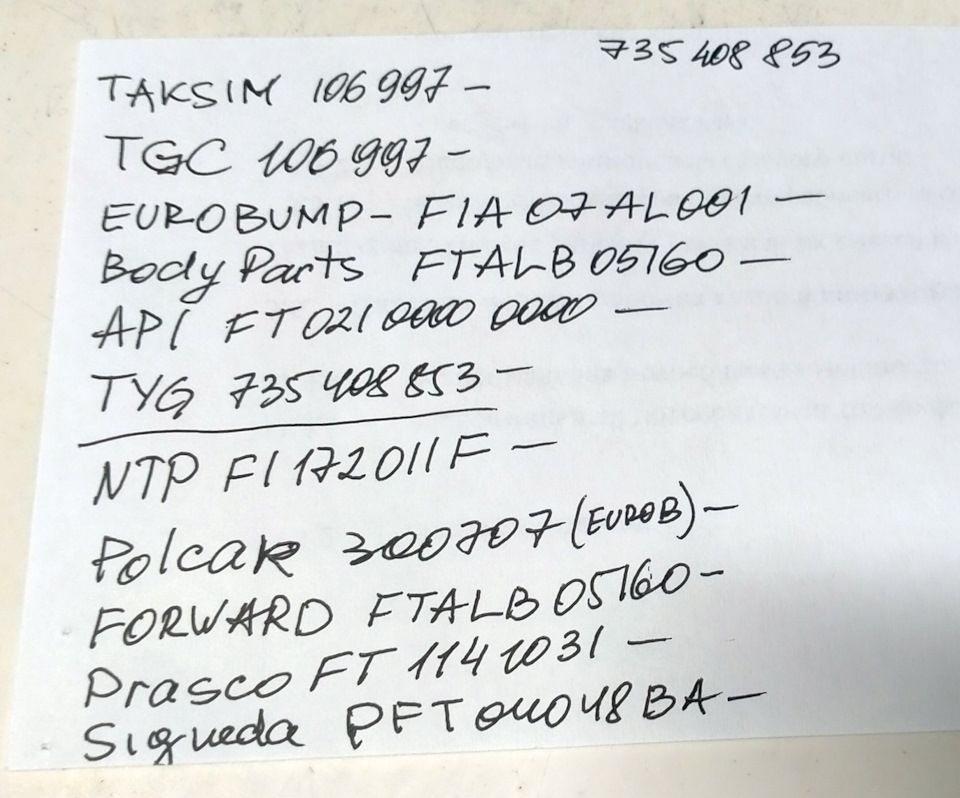 735 408 853
TAKSIM 106 997 –
TGC 106 997 –
EUROBUMP – FIA 07AL001 –
Body Parts FTALB 05160 –
API FT 021 0000 0000 –
TYG 735 408 853 –
NTP FI 172011F –
Polcar 300707 (EUROB) –
FORWARD FTALB 05160 –
Prasco FT 1141031 –
Signeda PFT04048BA –